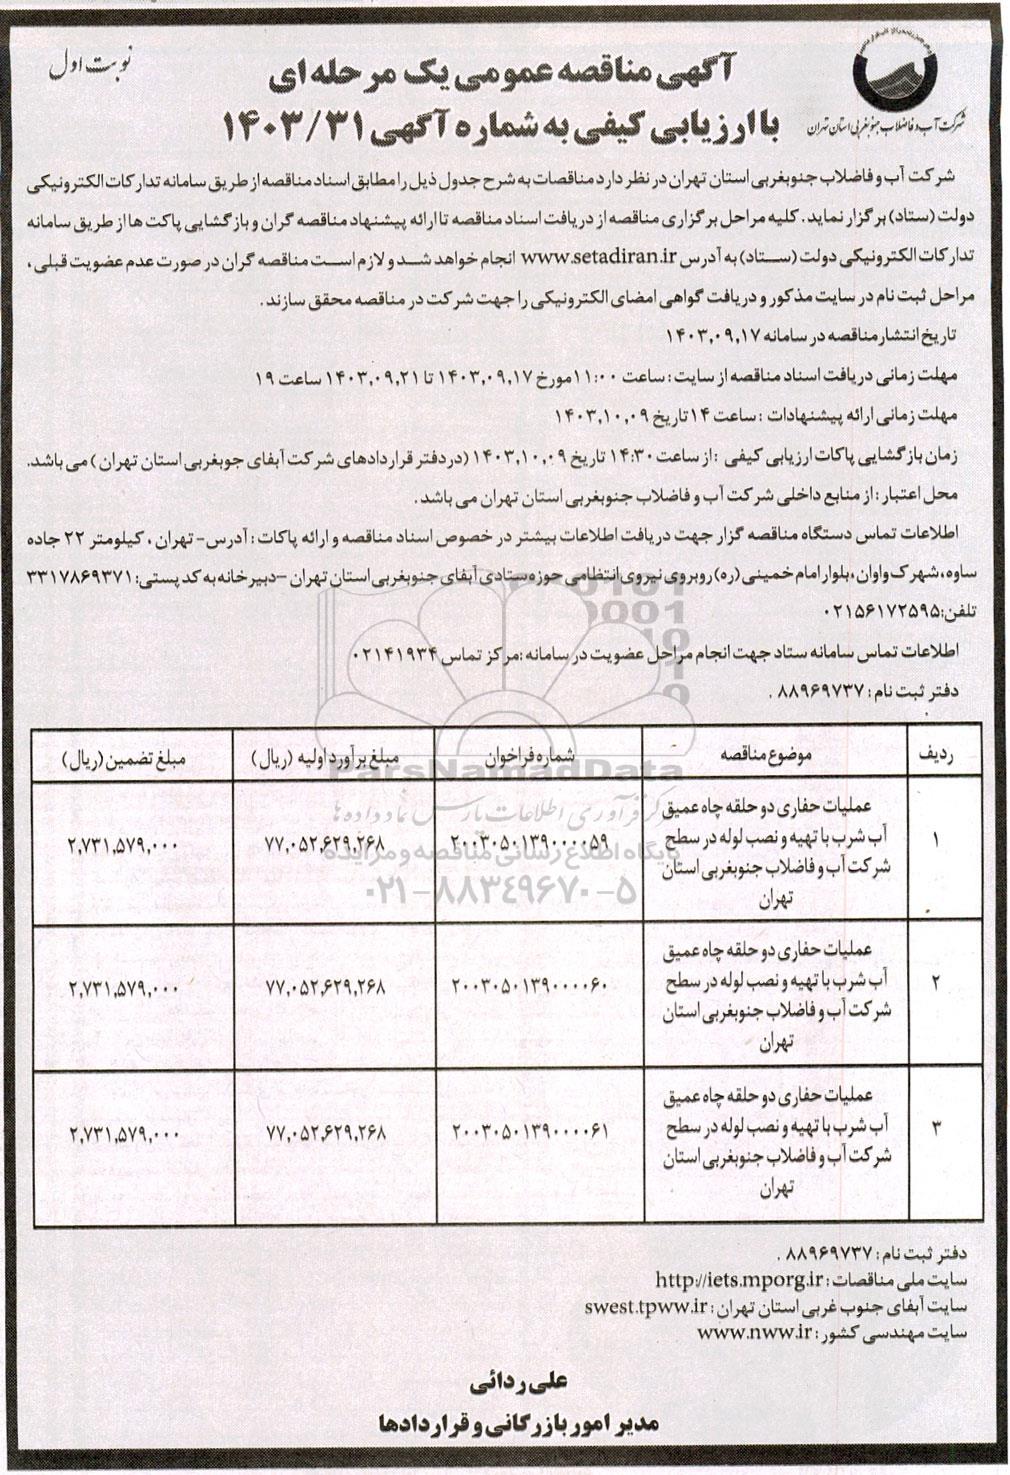 نوبت اول
شرکت آب و فاضلاب جنوبغربی استان تهران
آگهی مناقصه عمومی یک مرحله ای
با ارزیابی کیفی به شماره آگهی ۱۴۰۳/۳۱
شرکت آب و فاضلاب جنوبغربی استان تهران در نظر دارد مناقصات به شرح جدول ذیل را مطابق اسناد مناقصه از طریق سامانه تدارکات الکترونیکی
دولت (ستاد) برگزار نماید. کلیه مراحل برگزاری مناقصه از دریافت اسناد مناقصه تا ارائه پیشنهاد مناقصه گران و بازگشایی پاکت ها از طریق سامانه
تدارکات الکترونیکی دولت (ستاد) به آدرس www.setadiran.ir انجام خواهد شد و لازم است مناقصه گران در صورت عدم عضویت قبلی،
مراحل ثبت نام در سایت مذکور و دریافت گواهی امضای الکترونیکی را جهت شرکت در مناقصه محقق سازند.
تاریخ انتشار مناقصه در سامانه ۱۴۰۳,۰۹,۱۷
مهلت زمانی دریافت اسناد مناقصه از سایت : ساعت ۱۱:۰۰ مورخ ۱۴۰۳,۰۹,۱۷ تا ۱۴۰۳,۰۹,۲۱ ساعت ۱۹
مهلت زمانی ارائه پیشنهادات : ساعت ۱۴ تاریخ ۱۴۰۳,۱۰,۰۹
زمان بازگشایی پاکات ارزیابی کیفی : از ساعت ۱۴:۳۰ تاریخ ۱۴۰۳,۱۰,۰۹ (در دفتر قراردادهای شرکت آبفای جوبغربی استان تهران) می باشد.
محل اعتبار : از منابع داخلی شرکت آب و فاضلاب جنوبغربی استان تهران می باشد.
اطلاعات تماس دستگاه مناقصه گزار جهت دریافت اطلاعات بیشتر در خصوص اسناد مناقصه و ارائه پاکات : آدرس- تهران ، کیلومتر ۲۲ جاده
ساوه، شهرک واوان، بلوار امام خمینی (ره) روبروی نیروی انتظامی حوزه ستادی آبفای جنوبغربی استان تهران – دبیرخانه به کد پستی: ۳۳۱۷۸۶۹۳۷۱
تلفن: ۰۲۱۵۶۱۷۲۵۹۵
اطلاعات تماس سامانه ستاد جهت انجام مراحل عضویت در سامانه : مرکز تماس ۰۲۱۴۱۹۳۴
دفتر ثبت نام : ۸۸۹۶۹۷۳۷ .
ردیف موضوع مناقصه شماره فراخوان مبلغ برآورد اولیه (ریال) مبلغ تضمین (ریال)
۱ عملیات حفاری دو حلقه چاه عمیق
آب شرب با تهیه و نصب لوله در سطح
شرکت آب و فاضلاب جنوبغربی استان
تهران
۲۰۰۳۰۵۰۱۳۹۰۰۰۰۵۹ ۷۷,۰۵۲,۶۲۹,۲۶۸ ۲,۷۳۱,۵۷۹,۰۰۰
۲ عملیات حفاری دو حلقه چاه عمیق
آب شرب با تهیه و نصب لوله در سطح
شرکت آب و فاضلاب جنوبغربی استان
تهران
۲۰۰۳۰۵۰۱۳۹۰۰۰۰۶۰ ۷۷,۰۵۲,۶۲۹,۲۶۸ ۲,۷۳۱,۵۷۹,۰۰۰
۳ عملیات حفاری دو حلقه چاه عمیق
آب شرب با تهیه و نصب لوله در سطح
شرکت آب و فاضلاب جنوبغربی استان
تهران
۲۰۰۳۰۵۰۱۳۹۰۰۰۰۶۱ ۷۷,۰۵۲,۶۲۹,۲۶۸ ۲,۷۳۱,۵۷۹,۰۰۰
ParsNamadData
مرکز فرآوری اطلاعات پارس نماد داده ها
پایگاه اطلاع رسانی مناقصه و مزایده
۰۲۱-۸۸۳۴۹۶۷۰-۵
دفتر ثبت نام : ۸۸۹۶۹۷۳۷ .
سایت ملی مناقصات : http://iets.mporg.ir
سایت آبفای جنوب غربی استان تهران : swest.tpww.ir
سایت مهندسی کشور : www.nww.ir
علی ردائی
مدیر امور بازرگانی و قراردادها